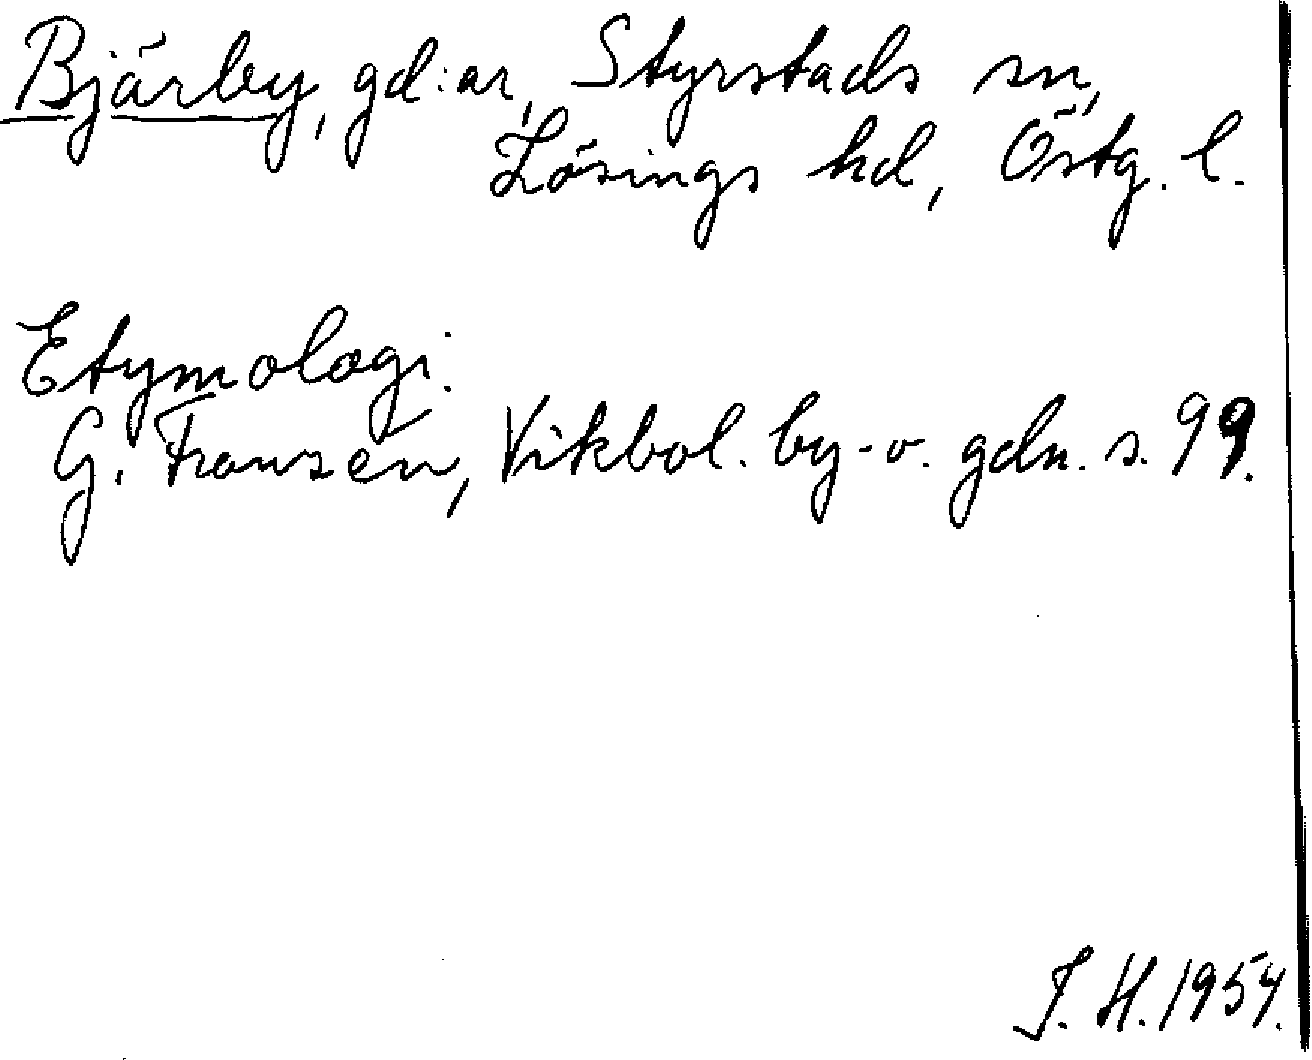 Bjärby, gd:ar, Styrstads sn,
Lösings hd, Östg. l.
Etymologi.
G. Franzén, Vikbol. by- o. gdn. s. 99.
J. H. 1954.